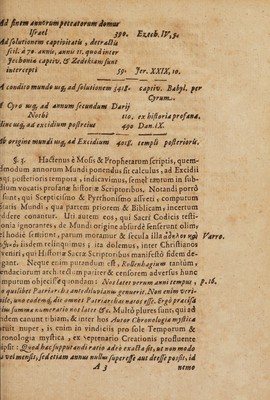 Ad finem annorum peccatorum domus
Israel 390. Ezech. IV, 5.
Ad solutionem captivitatis, detractis
scil. à 70. annis, annis 11. quod inter
Jechoniæ captiv. & Zedekiam sunt
intercepti 59. Jer. XXIX, 10.
A condito mundo usq; ad solutionem 3418. captiv. Babyl. per
Cyrum.
A Cyro usq; ad annum secundum Darij
Nothi 110. ex historia profana.
Hinc usq; ad excidium postrius 490 Dan. IX.
Ab origine mundi usq; ad Excidium 4018. templi posterioris.
§. 3. Hactenus è Mosis & Prophetarum scriptis, quem-
modum annorum Mundi ponendus sit calculus, ad Excidii
usq; posterioris tempora, indicavimus, semel tantum in sub-
dium vocatis profanæ historiæ Scriptoribus. Notandi porrò
sunt, qui Scepticismo & Pyrrhonismo asserti, computum
ætatis Mundi, qua partem priorem & Biblicam, incertum
reddere conantur. Uti autem eos, qui Sacri Codicis testi-
monia ignorantes, de Mundi origine absurdè senserunt olim,
vel hodie sentiunt, parùm moramur & cecula illa Varro.
iisdem relinquimus; ita dolemus, inter Christianos
veniri, qui Historiæ Sacræ Scriptoribus manifestò fidem de-
negant. Neque enim putandum est, Rollenhagium tantùm
mendaciorum architectum pariter & censorem adversus hunc
computum objecisse quondam: Nos latet verum anni tempus, p. 16.
quo quilibet Patriarcha antediluvianus genuerit. Non enim veri-
simile, uno eodemq; die omnes Patriarchas natos esse. Ergò precisa
summa numeratio nos latet &c. Multò plures sunt, qui ad
eandem canunt tibiam, & inter hos Autor Chronologiæ mystica
fuit nuper, is enim in vindiciis pro sole Temporum &
Chronologia mystica, ex septenario Creationis prodeunte
scripsit: Quod hac supputandi ratio adeò exacta sit, ut non modò
vel mensis, sed etiam annus nullus superesse aut deesse possit, id
A 3 nemo